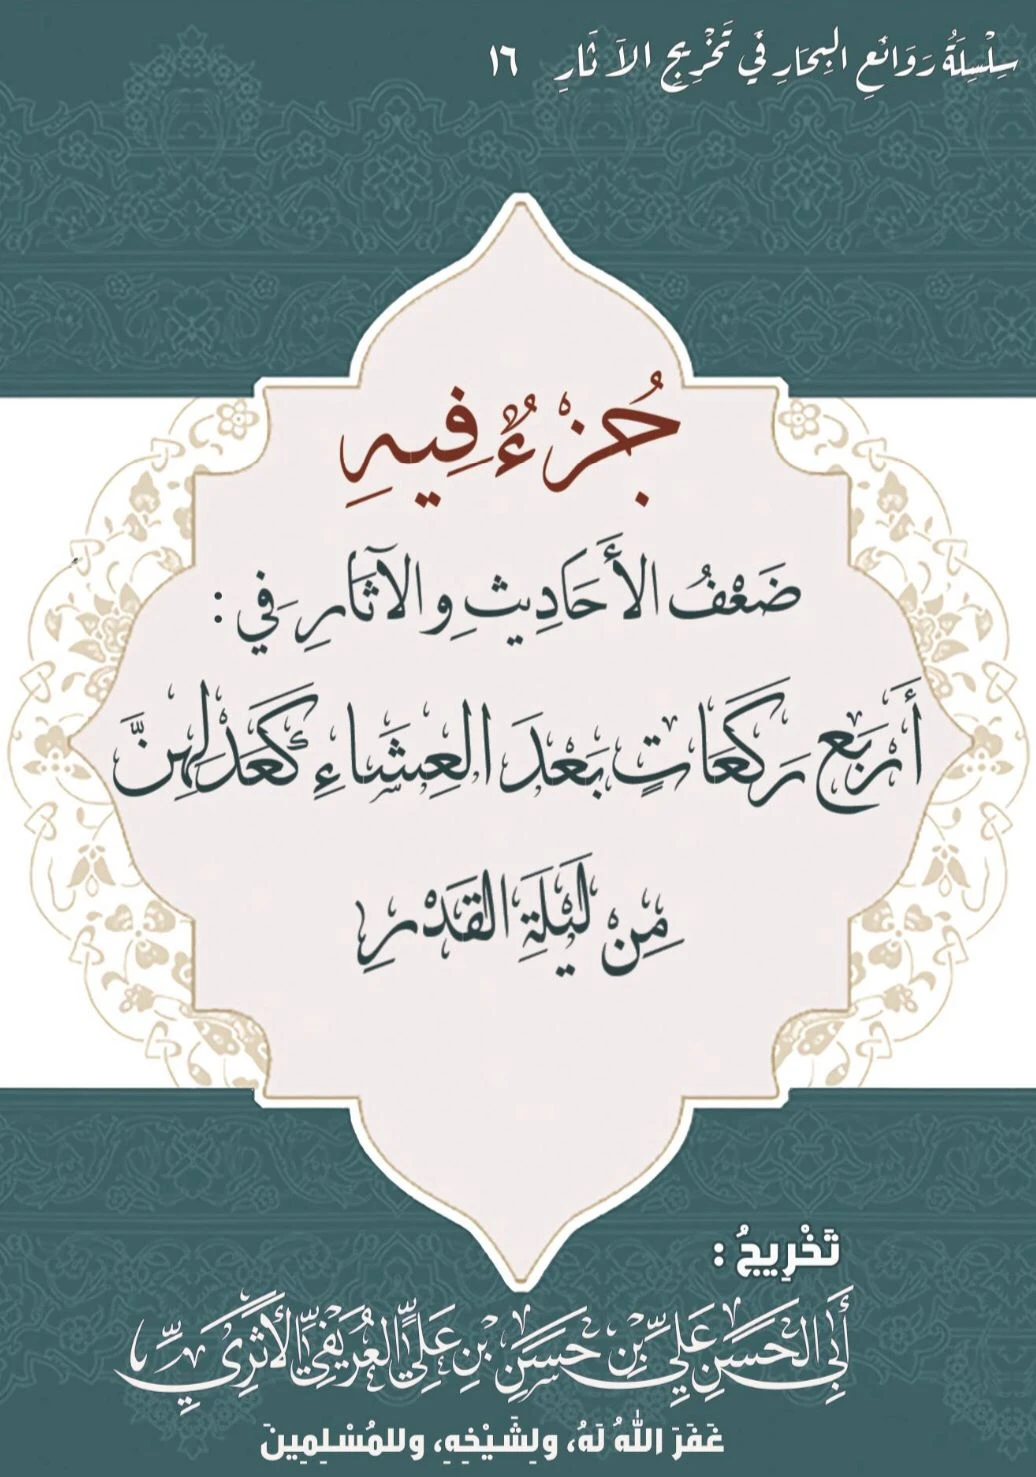 سِلْسِلَةُ رَوَائعِ البِحَارِ فَي تَخْرِيجِ الآثَارِ ١٦
جُزْءٌ فِيهِ
ضَعْفُ الأَحَادِيثِ والآثَارِ فَي :
أَرْبَعِ رَكَعَاتٍ بَعْدَ العِشَاءِ كَعَدْلِهِنَّ
مِنْ لَيْلَةِ القَدْرِ
تَخْرِيجُ :
أَبِي الحَسَنِ عَلِيِّ بْنِ حَسَنِ بْنِ عَلِيٍّ العُرَيْفِيِّ الأَثَرِيِّ
غَفَرَ اللهُ لَهُ، ولِشَيْخِهِ، وللمُسْلِمِينَ